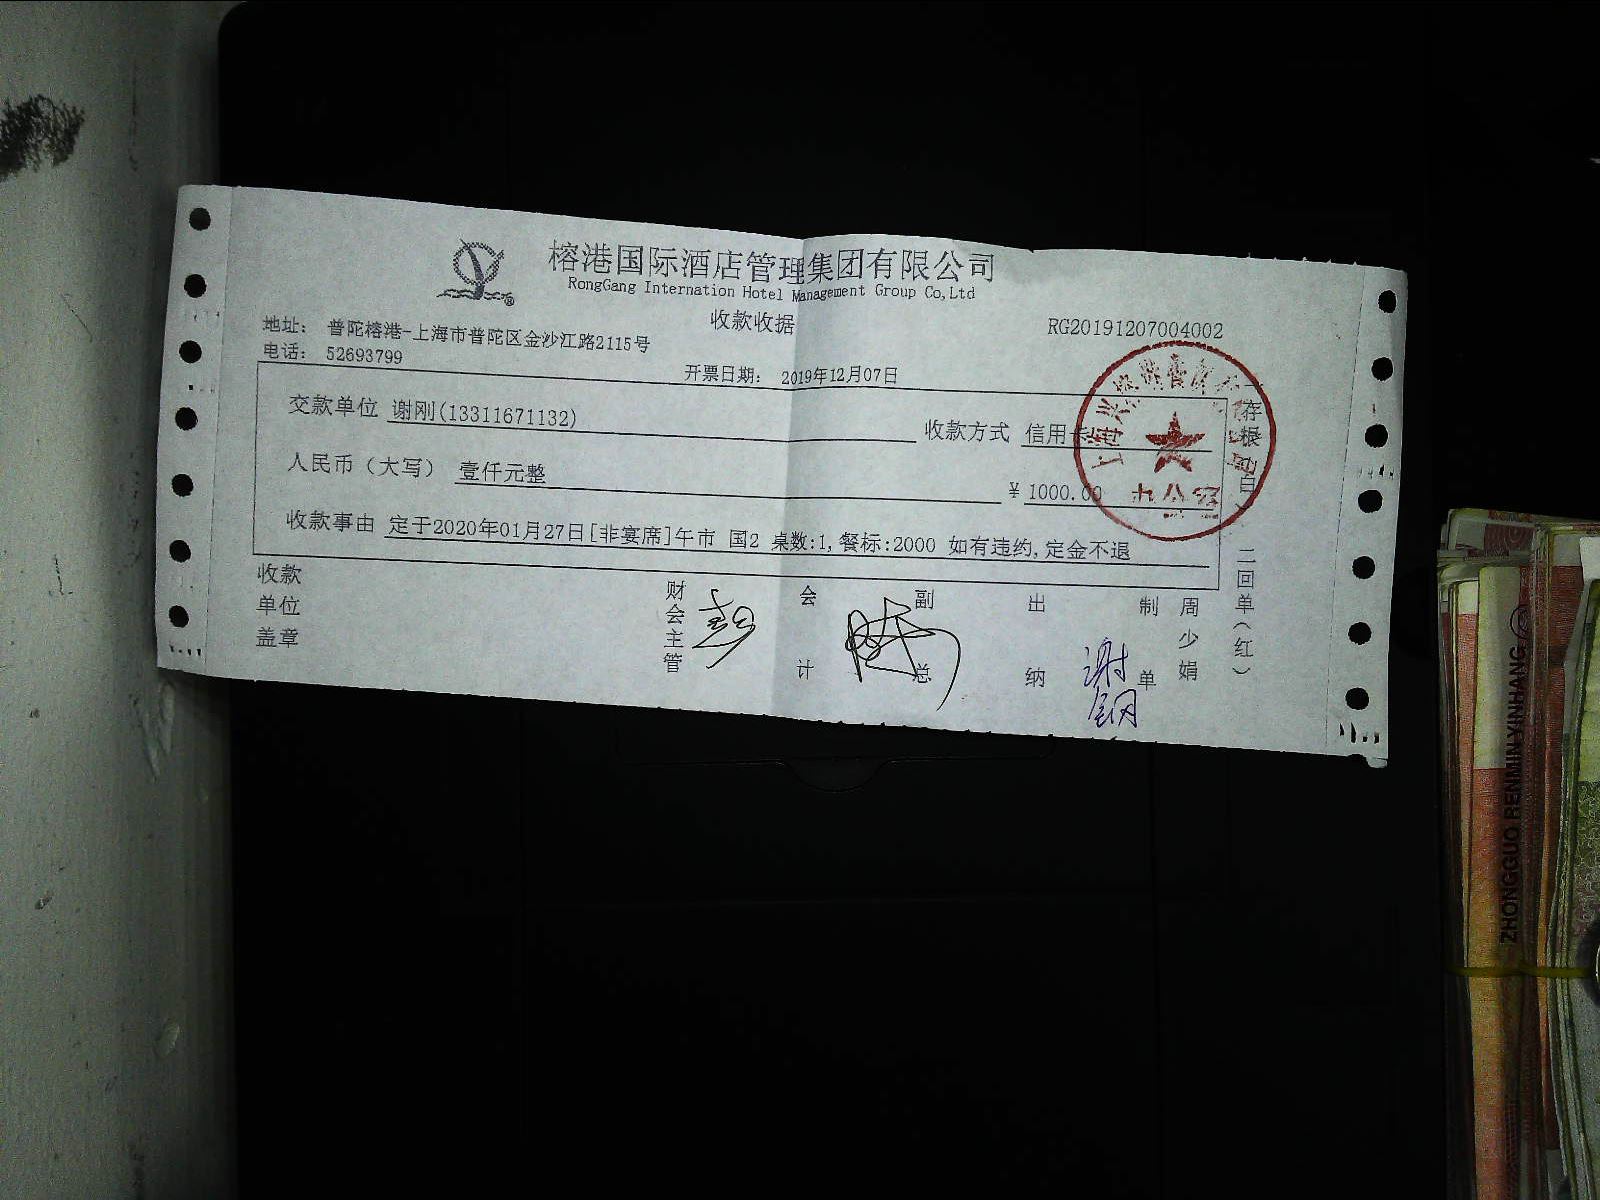 榕港国际酒店管理集团有限公司
RongGang Internation Hotel Management Group Co,Ltd
收款收据
RG20191207004002
地址： 普陀榕港-上海市普陀区金沙江路2115号
电话： 52693799
开票日期： 2019年12月07日
交款单位 谢刚(13311671132)
收款方式 信用卡
人民币（大写） 壹仟元整
¥ 1000.00
收款事由 定于2020年01月27日[非宴席]午市 国2 桌数:1,餐标:2000 如有违约,定金不退
收款单位盖章
财会主管
会计
副总
出纳
谢钢
制单
周少娟
存根（白）二回单（红）
ZHONGGUO RENMIN YINHANG